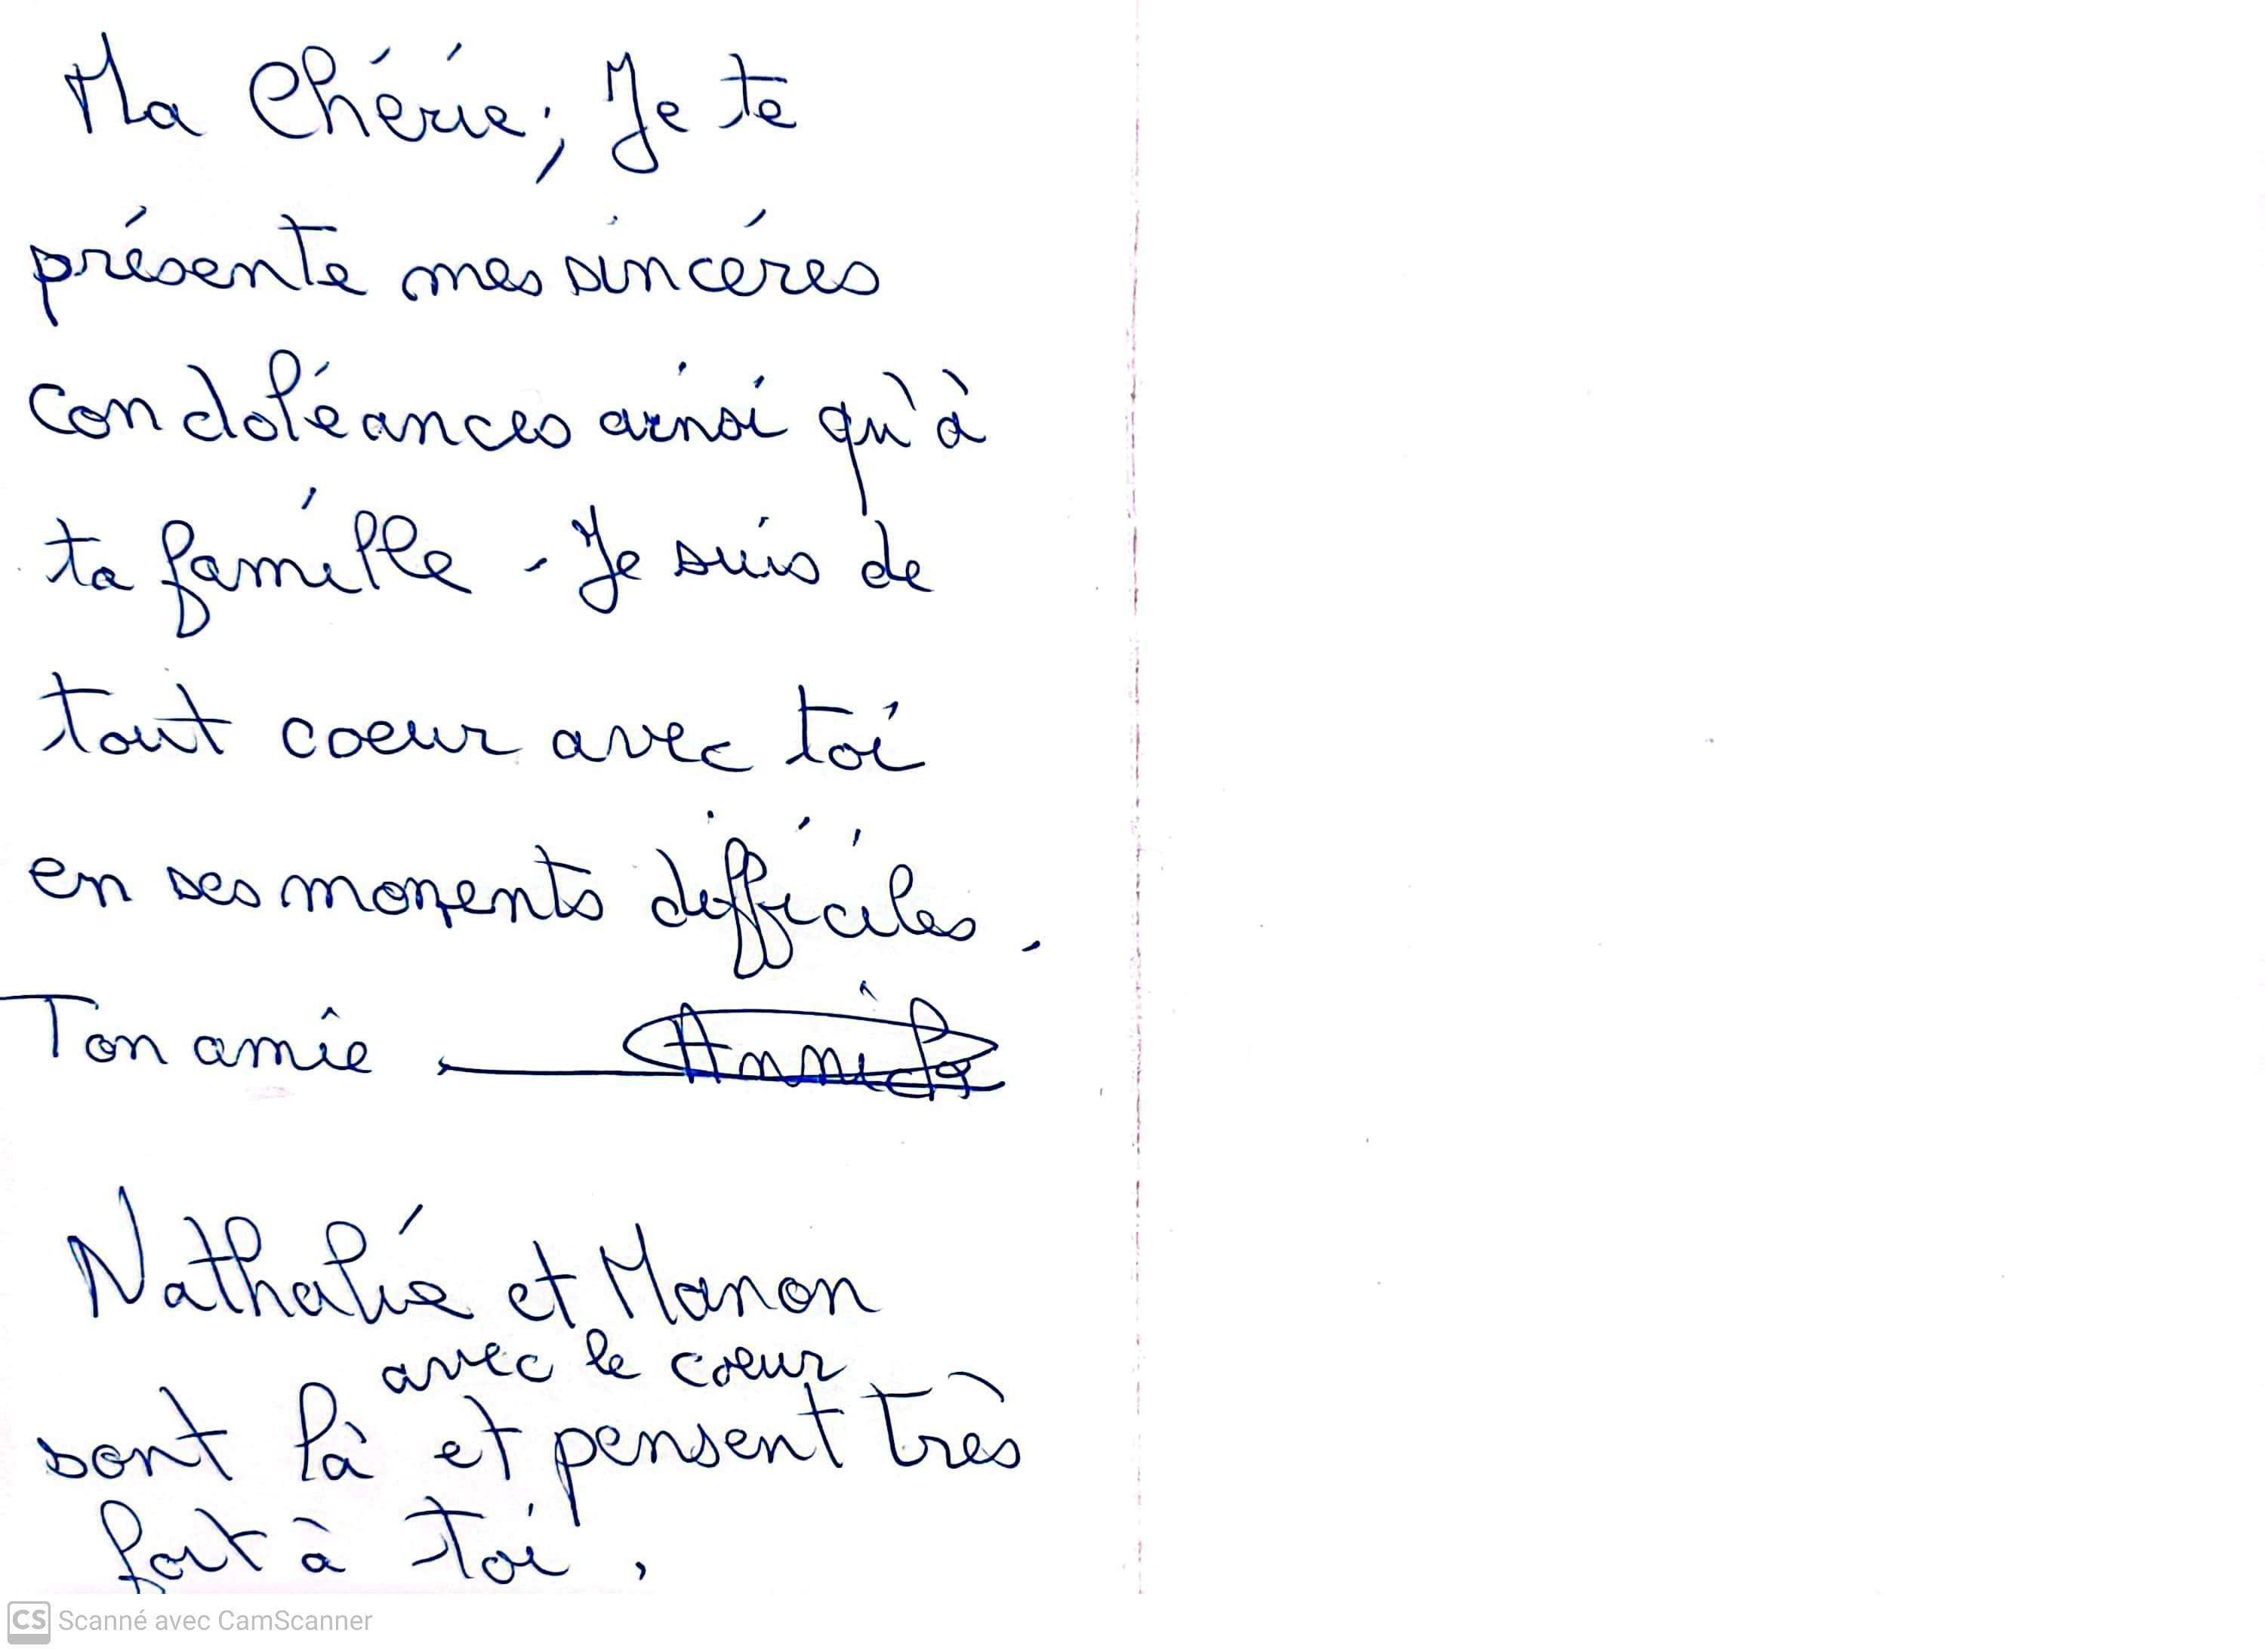 Ma Chérie, Je te
présente mes sincéres
condoléances ainsi qu'à
ta famille. Je suis de
tout coeur avec toi
en ses moments difficiles.
Ton amie Annick
Nathalie et Manon
avec le cœur
sont là et pensent très
fort à toi.
CS Scanné avec CamScanner